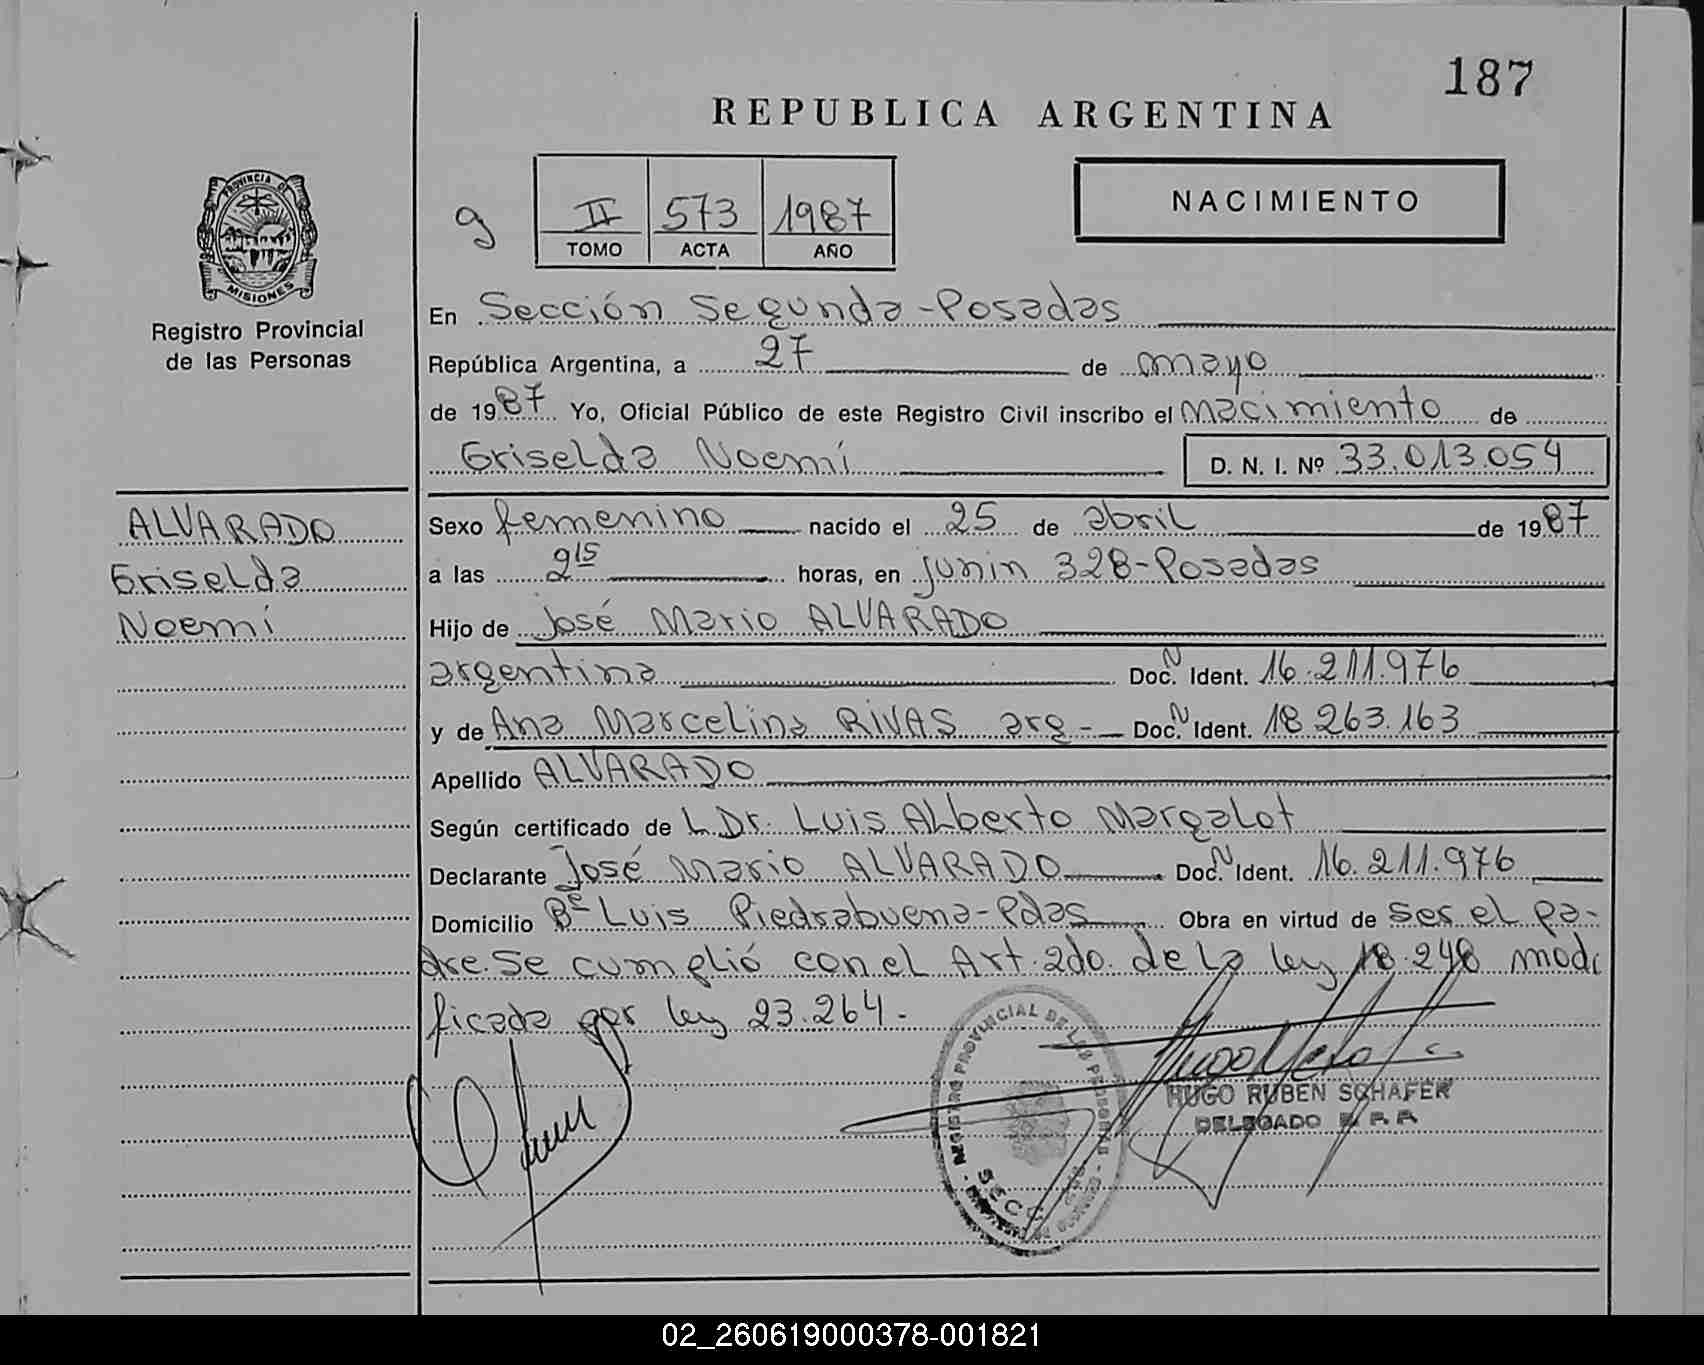 187
REPUBLICA ARGENTINA
PROVINCIA DE
MISIONES
Registro Provincial
de las Personas
g
II 573 1987
TOMO ACTA AÑO
NACIMIENTO
En Sección Segunda-Posadas
República Argentina, a 27 de mayo
de 1987 Yo, Oficial Público de este Registro Civil inscribo el Nacimiento de
Griselda Noemí D. N. I. Nº 33.013.054
ALVARADO
Griselda
Noemí
Sexo femenino nacido el 25 de abril de 1987
a las 9 15 horas, en Junin 328-Posadas
Hijo de José Mario ALVARADO
argentina Doc. N Ident. 16.211.976
y de Ana Marcelina RIVAS arg- Doc. N Ident. 18.263.163
Apellido ALVARADO
Según certificado de L Dr. Luis Alberto Margalot
Declarante José Mario ALVARADO Doc. N Ident. 16.211.976
Domicilio Bº Luis Piedrabuena-Pdas Obra en virtud de ser el pa-
dre. Se cumplió con el Art. 2do. de la ley 18.248 modi
ficada por ley 23.264.-
REGISTRO PROVINCIAL DE LAS PERSONAS
SECC
HUGO RUBEN SCHAFER
DELEGADO R.P.P.
02_260619000378-001821